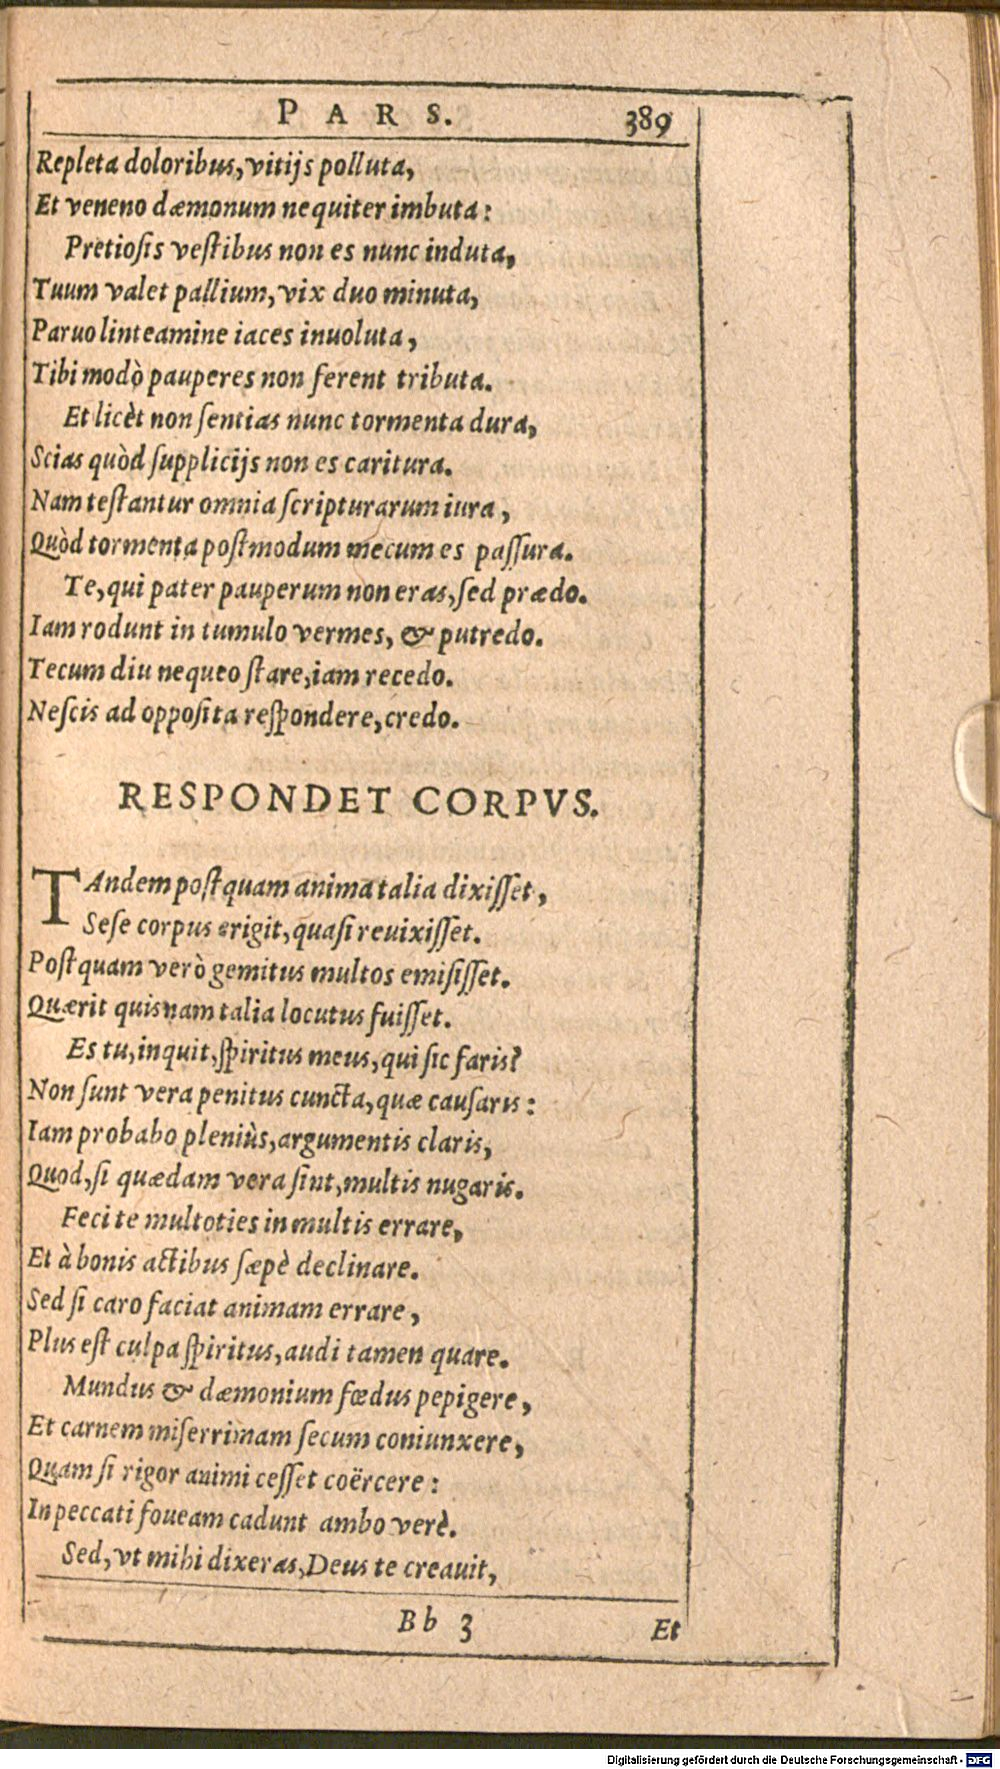 PARS. 389
Repleta doloribus, vitijs polluta,
Et veneno dæmonum nequiter imbuta:
Pretiosis vestibus non es nunc induta,
Tuum valet pallium, vix duo minuta,
Paruo linteamine iaces inuoluta,
Tibi modò pauperes non ferent tributa.
Et licèt non sentias nunc tormenta dura,
Scias quòd supplicijs non es caritura.
Nam testantur omnia scripturarum iura,
Quòd tormenta postmodum mecum es passura.
Te, qui pater pauperum non eras, sed prædo.
Iam rodunt in tumulo vermes, & putredo.
Tecum diu nequeo stare, iam recedo.
Nescis ad opposita respondere, credo.
RESPONDET CORPVS.
TAndem postquam anima talia dixisset,
Sese corpus erigit, quasi reuixisset.
Postquam verò gemitus multos emisisset.
Quærit quisnam talia locutus fuisset.
Es tu, inquit, spiritus meus, qui sic faris?
Non sunt vera penitus cuncta, quæ causaris:
Iam probabo pleniùs, argumentis claris,
Quod, si quædam vera sint, multis nugaris.
Feci te multoties in multis errare,
Et à bonis actibus sæpè declinare.
Sed si caro faciat animam errare,
Plus est culpa spiritus, audi tamen quare.
Mundus & dæmonium fœdus pepigere,
Et carnem miserrimam secum coniunxere,
Quam si rigor animi cesset coërcere:
In peccati foueam cadunt ambo verè.
Sed, vt mihi dixeras, Deus te creauit,
Bb 3 Et
Digitalisierung gefördert durch die Deutsche Forschungsgemeinschaft - DFG